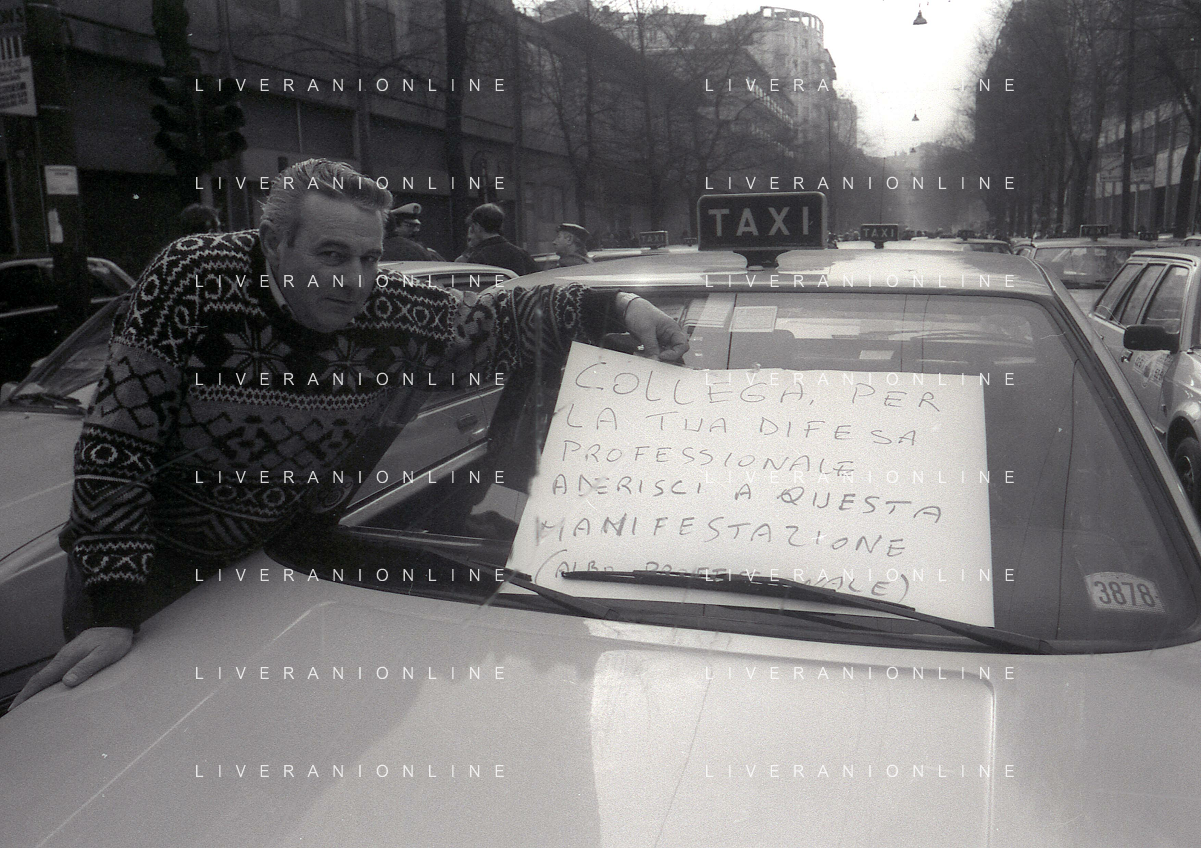 LIVERANIONLINE LIVERANIONLINE
LIVERANIONLINE LIVERANIONLINE
TAXI
TAXI
TAXI
LIVERANIONLINE LIVERANIONLINE
LIVERANIONLINE LIVERANIONLINE
COLLEGA, PER
LA TUA DIFESA
PROFESSIONALE
ADERISCI A QUESTA
MANIFESTAZIONE
(ALBO PROFESSIONALE)
3878
LIVERANIONLINE LIVERANIONLINE
LIVERANIONLINE LIVERANIONLINE
LIVERANIONLINE LIVERANIONLINE
LIVERANIONLINE LIVERANIONLINE